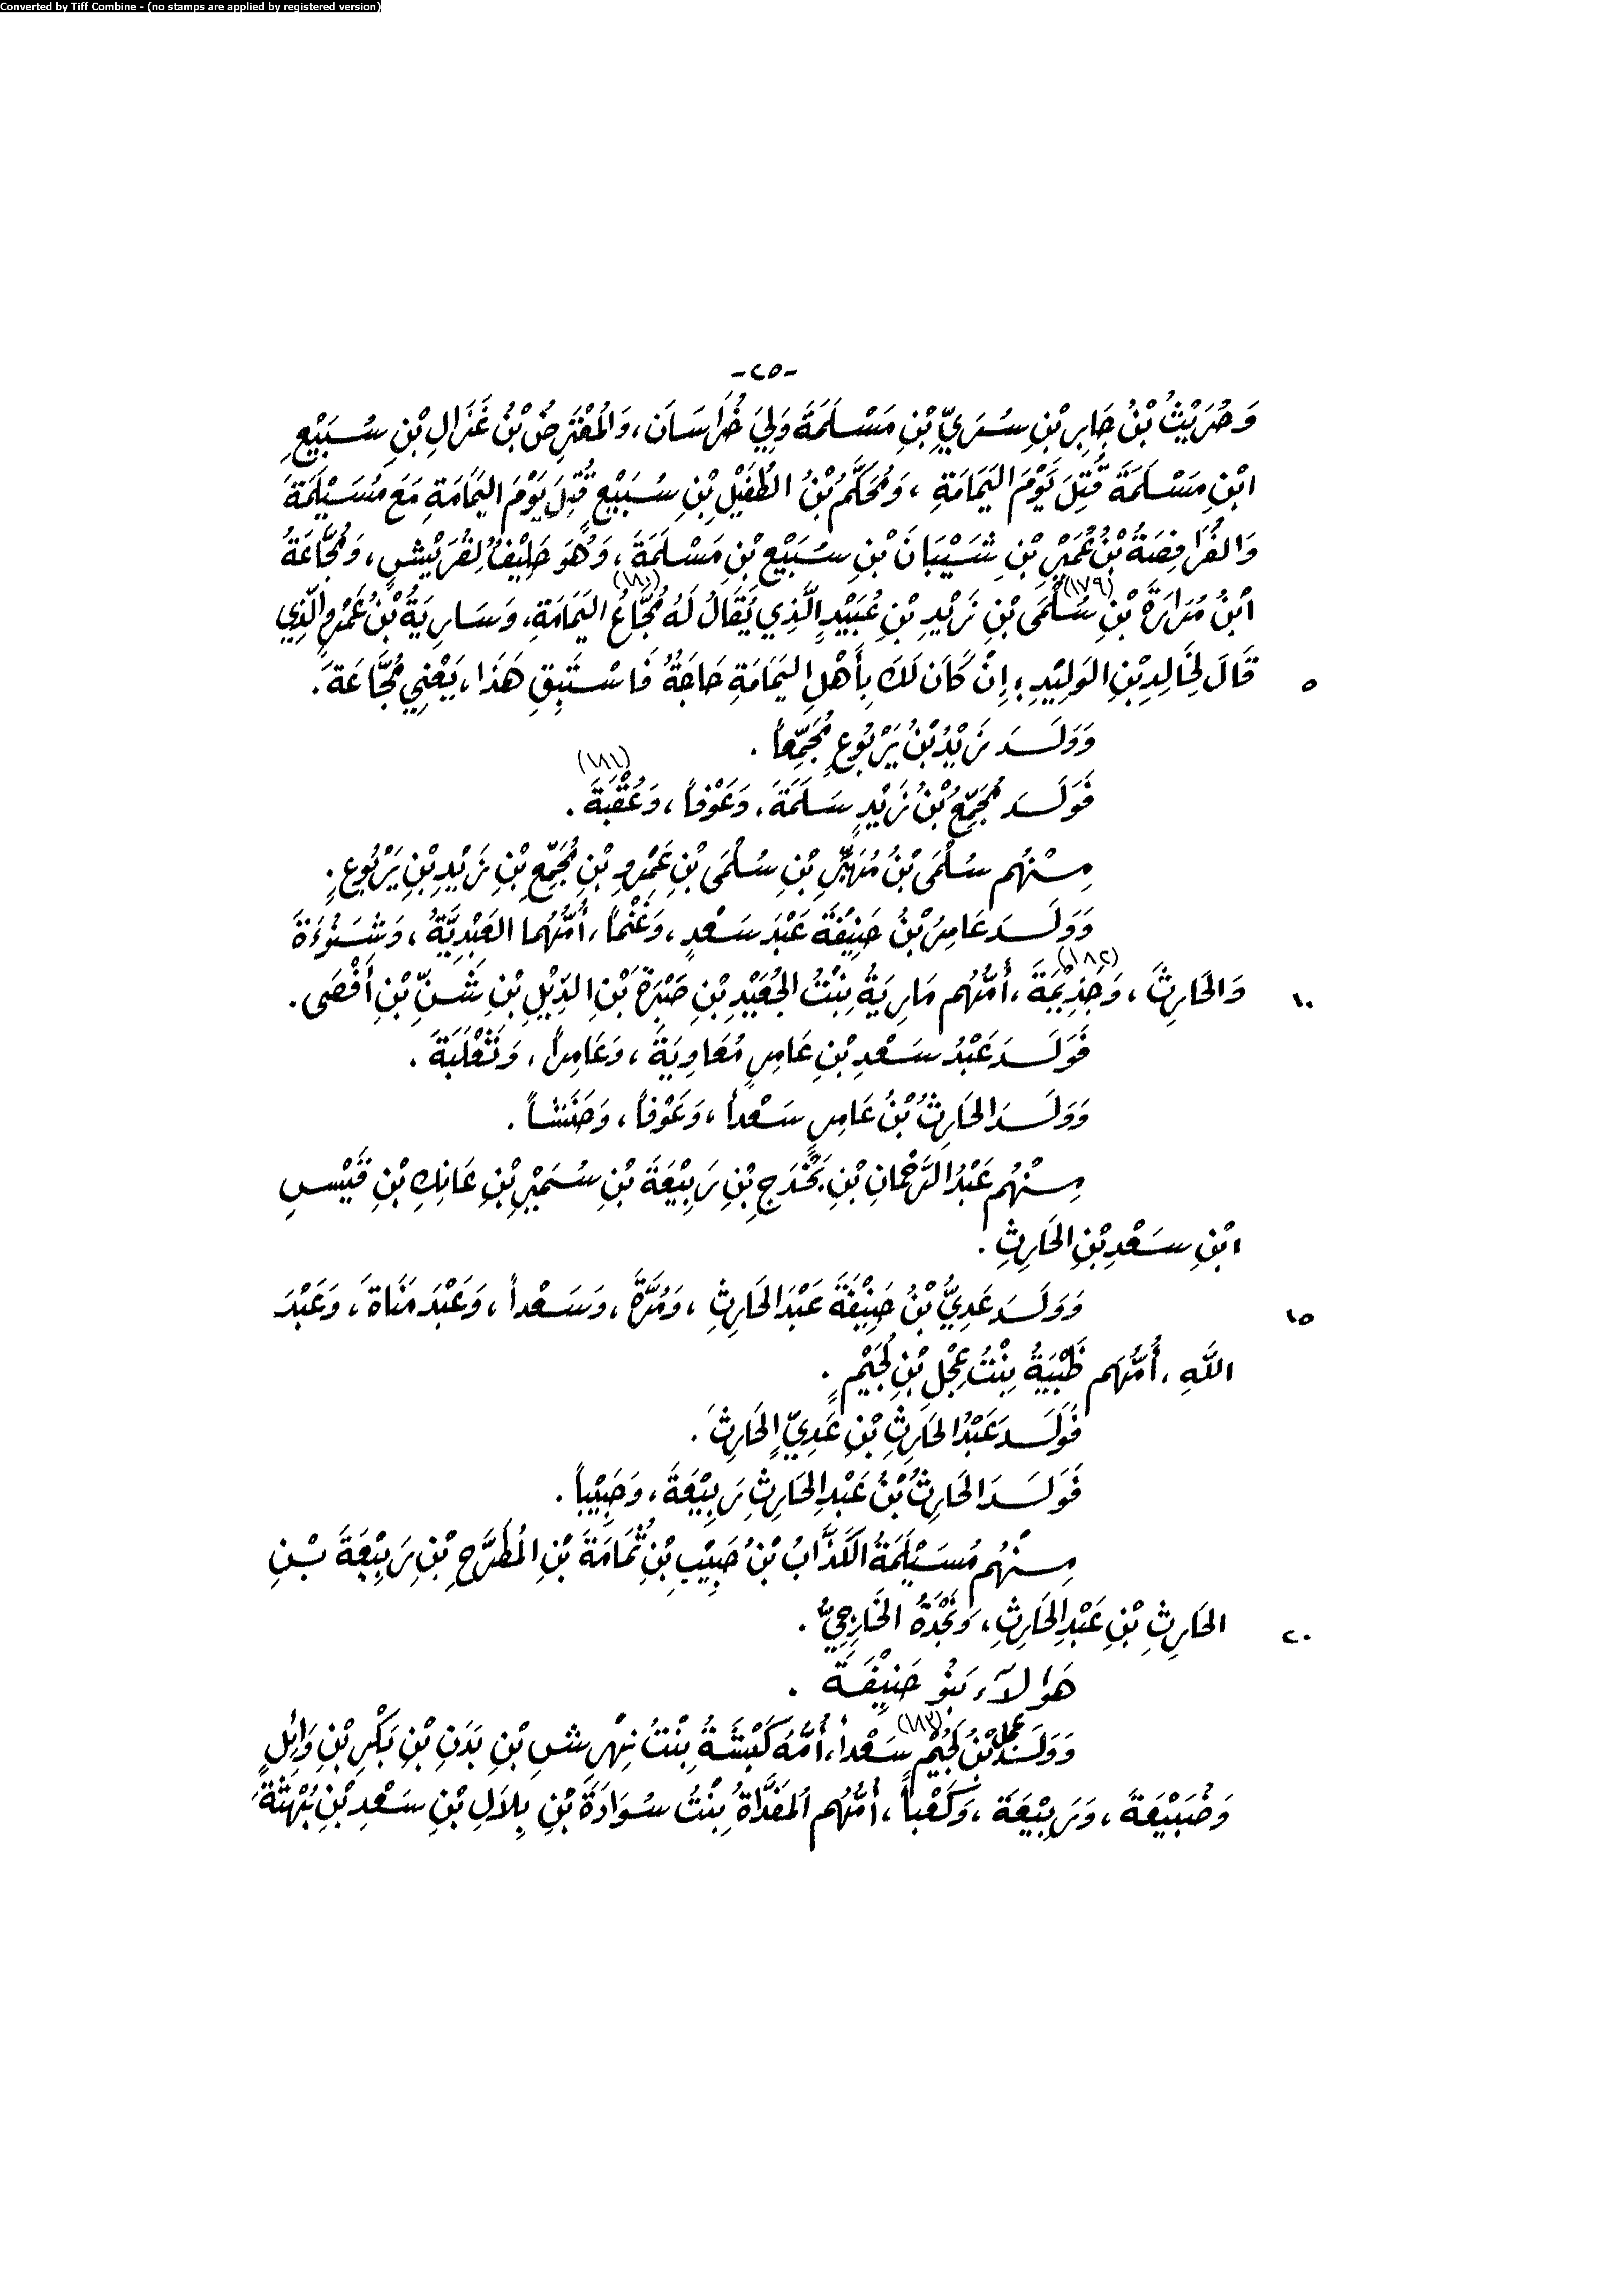 Converted by Tiff Combine - (no stamps are applied by registered version)
-٢٥-
وَحُرَيْثُ بْنُ جَابِرِ بْنِ سُرَيِّ بْنِ مَسْلَمَةَ وَلِيَ خُرَاسَانَ، وَالمُعْتَرِضُ بْنُ غَزَالِ بْنِ سُبَيْعِ
ابْنِ مَسْلَمَةَ قُتِلَ يَوْمَ اليَمَامَةِ ، وَمُحَكَّمُ بْنُ الطُّفَيْلِ بْنِ سُبَيْعٍ قُتِلَ يَوْمَ اليَمَامَةِ مَعَ مُسَيْلَمَةَ
وَالفُرَافِصَةُ بْنُ عُمَيْرِ بْنِ شَيْبَانَ بْنِ سُبَيْعِ بْنِ مَسْلَمَةَ ، وَهُوَ حَلِيْفٌ لِقُرَيْشٍ ، وَمُجَّاعَةُ
ابْنُ مُرَارَةَ بْنِ سُلْمَى (١٧٩) بْنِ زَيْدِ بْنِ عُبَيْدٍ الَّذِي يُقَالُ لَهُ مُجَّاعُ (١٨٠) اليَمَامَةِ، وَسَارِيَةُ بْنُ عَمْرٍو الَّذِي
٥ قَالَ لِخَالِدِ بْنِ الوَلِيْدِ : إِنْ كَانَ لَكَ بِأَهْلِ اليَمَامَةِ حَاجَةٌ فَاسْتَبِقِ هَذَا ، يَعْنِي مُجَّاعَةَ .
وَوَلَدَ زَيْدُ بْنُ يَرْبُوعٍ مُجَمِّعاً .
فَوَلَدَ مُجَمِّعُ بْنُ زَيْدٍ سَلَمَةَ ، وَعَوْفاً ، وَعُقْبَةَ (١٨١) .
مِنْهُم سُلْمَى بْنُ مُهَيَّرِ بْنِ سُلْمَى بْنِ عَمْرِو بْنِ مُجَمِّعِ بْنِ زَيْدِ بْنِ يَرْبُوعٍ .
وَوَلَدَ عَامِرُ بْنُ حَنِيْفَةَ عَبْدَ سَعْدٍ ، وَغَنْماً ، أُمُّهُما العَبْدِيَّةُ ، وَشَنُوءَةَ
١٠ وَالحَارِثَ ، وَجَذِيْمَةَ (١٨٢) ، أُمُّهُم مَارِيَةُ بِنْتُ الجُعَيْدِ بْنِ صَبْرَةَ بْنِ الدِّيْلِ بْنِ شَنِّ بْنِ أَفْصَى .
فَوَلَدَ عَبْدُ سَعْدِ بْنِ عَامِرٍ مُعَاوِيَةَ ، وَعَامِراً ، وَثَعْلَبَةَ .
وَوَلَدَ الحَارِثُ بْنُ عَامِرٍ سَعْداً ، وَعَوْفاً ، وَحَنَشاً .
مِنْهُم عَبْدُ الرَّحْمَانِ بْنِ بَحْدَجِ بْنِ رَبِيْعَةَ بْنِ سُمَيْرِ بْنِ عَاتِكِ بْنِ قَيْسِ
ابْنِ سَعْدِ بْنِ الحَارِثِ .
١٥ وَوَلَدَ عَدِيُّ بْنُ حَنِيْفَةَ عَبْدَ الحَارِثِ ، وَمُرَّةَ ، وَسَعْداً ، وَعَبْدَ مَنَاةَ ، وَعَبْدَ
اللَّهِ ، أُمُّهُم ظَبْيَةُ بِنْتُ عِجْلِ بْنِ لُجَيْمٍ .
فَوَلَدَ عَبْدُ الحَارِثِ بْنِ عَدِيٍّ الحَارِثَ .
فَوَلَدَ الحَارِثُ بْنُ عَبْدِ الحَارِثِ رَبِيْعَةَ ، وَحَبِيْباً .
مِنْهُم مُسَيْلَمَةُ الكَذَّابُ بْنُ حَبِيْبِ بْنِ ثُمَامَةَ بْنِ المُطَرَّحِ بْنِ رَبِيْعَةَ بْنِ
٢٠ الحَارِثِ بْنِ عَبْدِ الحَارِثِ ، وَنَجْدَةُ الخَارِجِيُّ .
هَؤلَاءِ بَنُو حَنِيْفَةَ .
وَوَلَدَ عِجْلُ بْنُ لُجَيْمٍ (١٨٣) سَعْداً ، أُمُّهُ كَبْشَةُ بِنْتُ نِهْرِشِ بْنِ بَدَنِ بْنِ بَكْرِ بْنِ وَائِلٍ
وَضُبَيْعَةَ ، وَرَبِيْعَةَ ، وَكَعْباً ، أُمُّهُم المُفَدَّاةُ بِنْتُ سُوَادَةَ بْنِ بِلَالِ بْنِ سَعْدِ بْنِ بُهْثَةَ